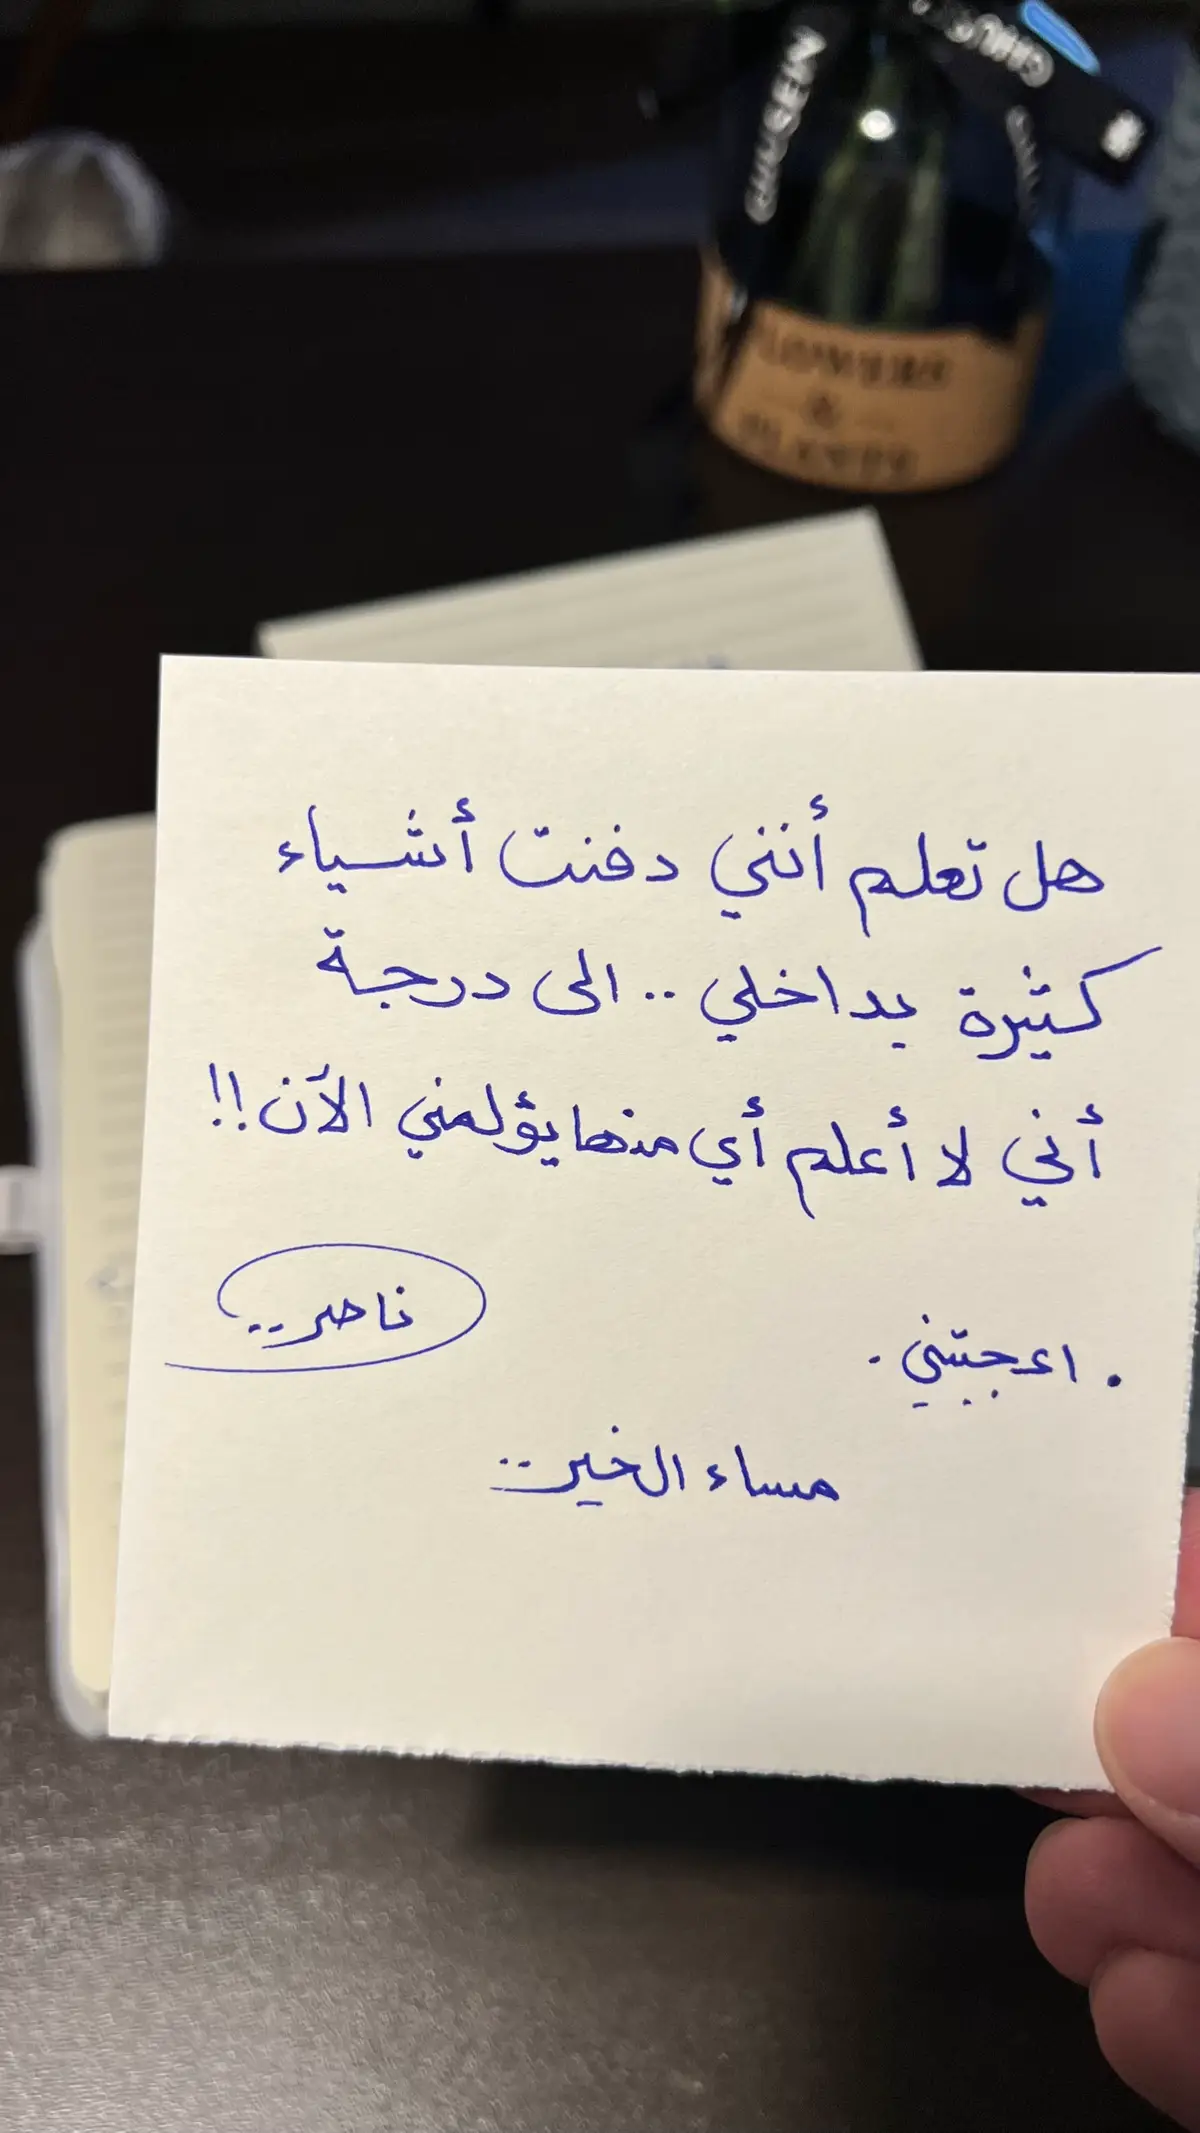 FLOWERS
&
هل تعلم أنني دفنت أشياء
كثيرة بداخلي .. الى درجة
أني لا أعلم أي منها يؤلمني الآن!!
ناصر..
. اعجبتني .
مساء الخير..